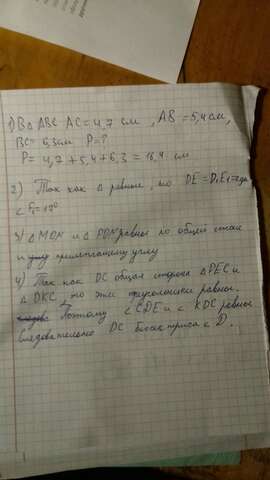 1) В △ ABC AC = 4,7 см, AB = 5,4 см,
BC = 6,3 см P = ?
P = 4,7 + 5,4 + 6,3 = 16,4 см
2) Так как △ равные, то DE = D₁E₁ =
∠ E₁ =
3) △ MDN и △ PDN равны по общей
и прилегающему углу
4) Так как DC общая сторона △ DEC и
△ DKC, то эти треугольники равные.
Поэтому ∠ CDE и ∠ KDC равные
следовательно DC биссектриса ∠ D.